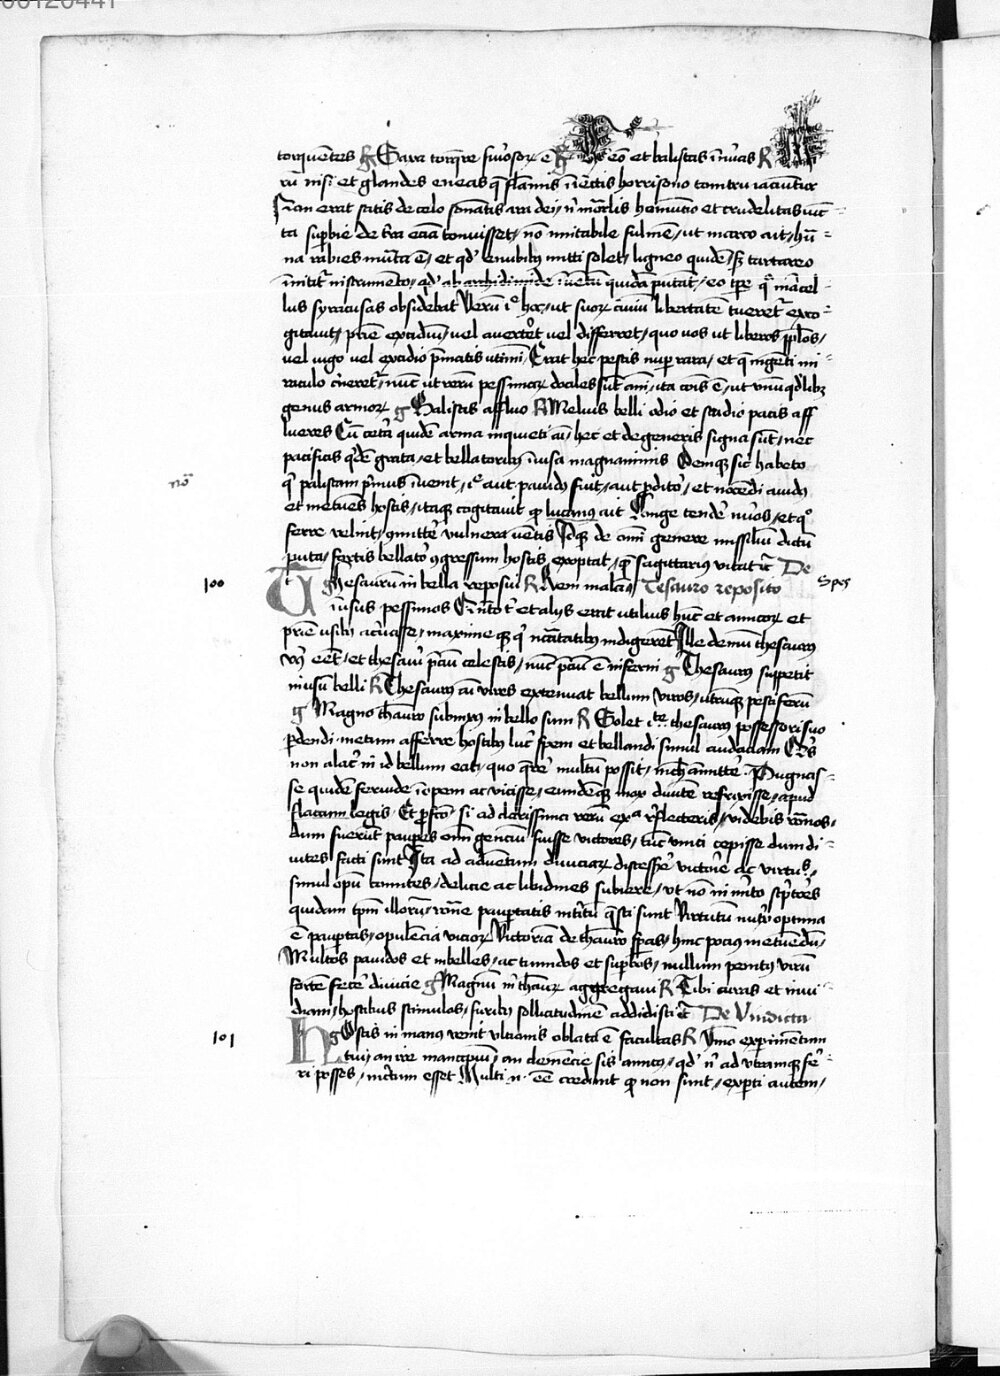 00120441
torquentes R Saxa torqere furiosorum e g Habeo et balistas innumeras R Mi
rum nisi et glandes eneas que flammis iniectis horrisono tonitru iaciuntur
Non erat satis de celo tonantis ira dei nisi mortalis homuncio et crudelitas iunc
ta superbie de terra etiam tonuisset non imitabile fulmen ut maro ait huma
na rabies imitata est et quod e nubibus mitti solet ligneo quidem sed tartareo
mittitur instrumento quod ab archimede inventum quidam putant eo tempore quo marcel
lus syracusas obsidebat Verum is hoc ut suorum civium libertatem tueretur exco
gitavit patrieque excidium vel averteret vel differret quo vos ut liberos populos
vel iugo vel excidio prematis utimini Erat hec pestis nuper rara et cum ingenti mi
raculo cerneretur nunc ut rerum pessimarum dociles sunt animi ita comunis est ut unum quodlibet
genus armorum g Balistis affluo R Melius belli odio et studio pacis aff
lueres Cum cetera quidem arma inquieti animi hec et degeneris signa sunt nec
pacificis quidem grata et bellatoribus invisa magnanimis Denique sic habeto
qui balistam primus invenit is aut pavidus fuit aut proditor et nocendi avidus
no
et metuens hostis itaque cogitavit quod lucanus ait Longe tendere nervos et quo
ferre velint permittere vulnera ventis Idque de omni genere missilium dictum
puta fortis bellator congressum hostis exoptat quem sagittarius vitat etc De
100
g Thesaurum in bella reposui R Rem malam Tesauro reposito
Spes
in usus pessimos Quanto tibi et aliis erat utilius hunc et amicorum et
patrie usibus acervasse maxime eorum qui necessitatibus indigerent Ille demum thesaurus
verus esset et thesauri precium celestis nunc precium est inferni g Thesaurus suppetit
in usum belli R Thesaurus animi vires extenuat bellum viros utrumque pestiferum
g Magno thesauro subnixus in bello sum R Solet iste thesaurus possessori suo
perdendi metum afferre hostibus lucri spem et bellandi simul audaciam Quis
non alacer in id bellum eat quo querere multum possit nichil amittere Pugnas
se quidem fervide inopem ac vicisse eundemque mox divitem refrixisse apud
flaccum legis Et profecto si ad clarissima rerum exempla reflecteris videbis romanos
dum fuerunt pauperes omnium gencium fuisse victores tunc vinci cepisse dum di
vites facti sunt Ita ad adventum diviciarum discessere victorie ac virtus
simul opum comites delicie ac libidines subiere ut non immerito scriptores
quidam temporum illorum romane paupertatis interitum questi sunt Virtutum nutrix optima
est paupertas opulencia viciorum Victoriam de thesauro speras hinc pocius metuendum
Multos pavidos et imbelles ac timidos et superbos nullum penitus virum
fortem fecere divicie g Magnum in thesaurum aggregavi R Tibi curas et invi
diam hostibus stimulos furibus sollicitudinem addidisti etc De Vindicta
101
g Hostis in manus venit ulcionis oblata est facultas R Ymo experimentum
tui an ire mancipium an clemencie sis amicus quod nisi ad utramque fer
ri posses incertum esset Multi enim esse credunt quod non sunt experti autem